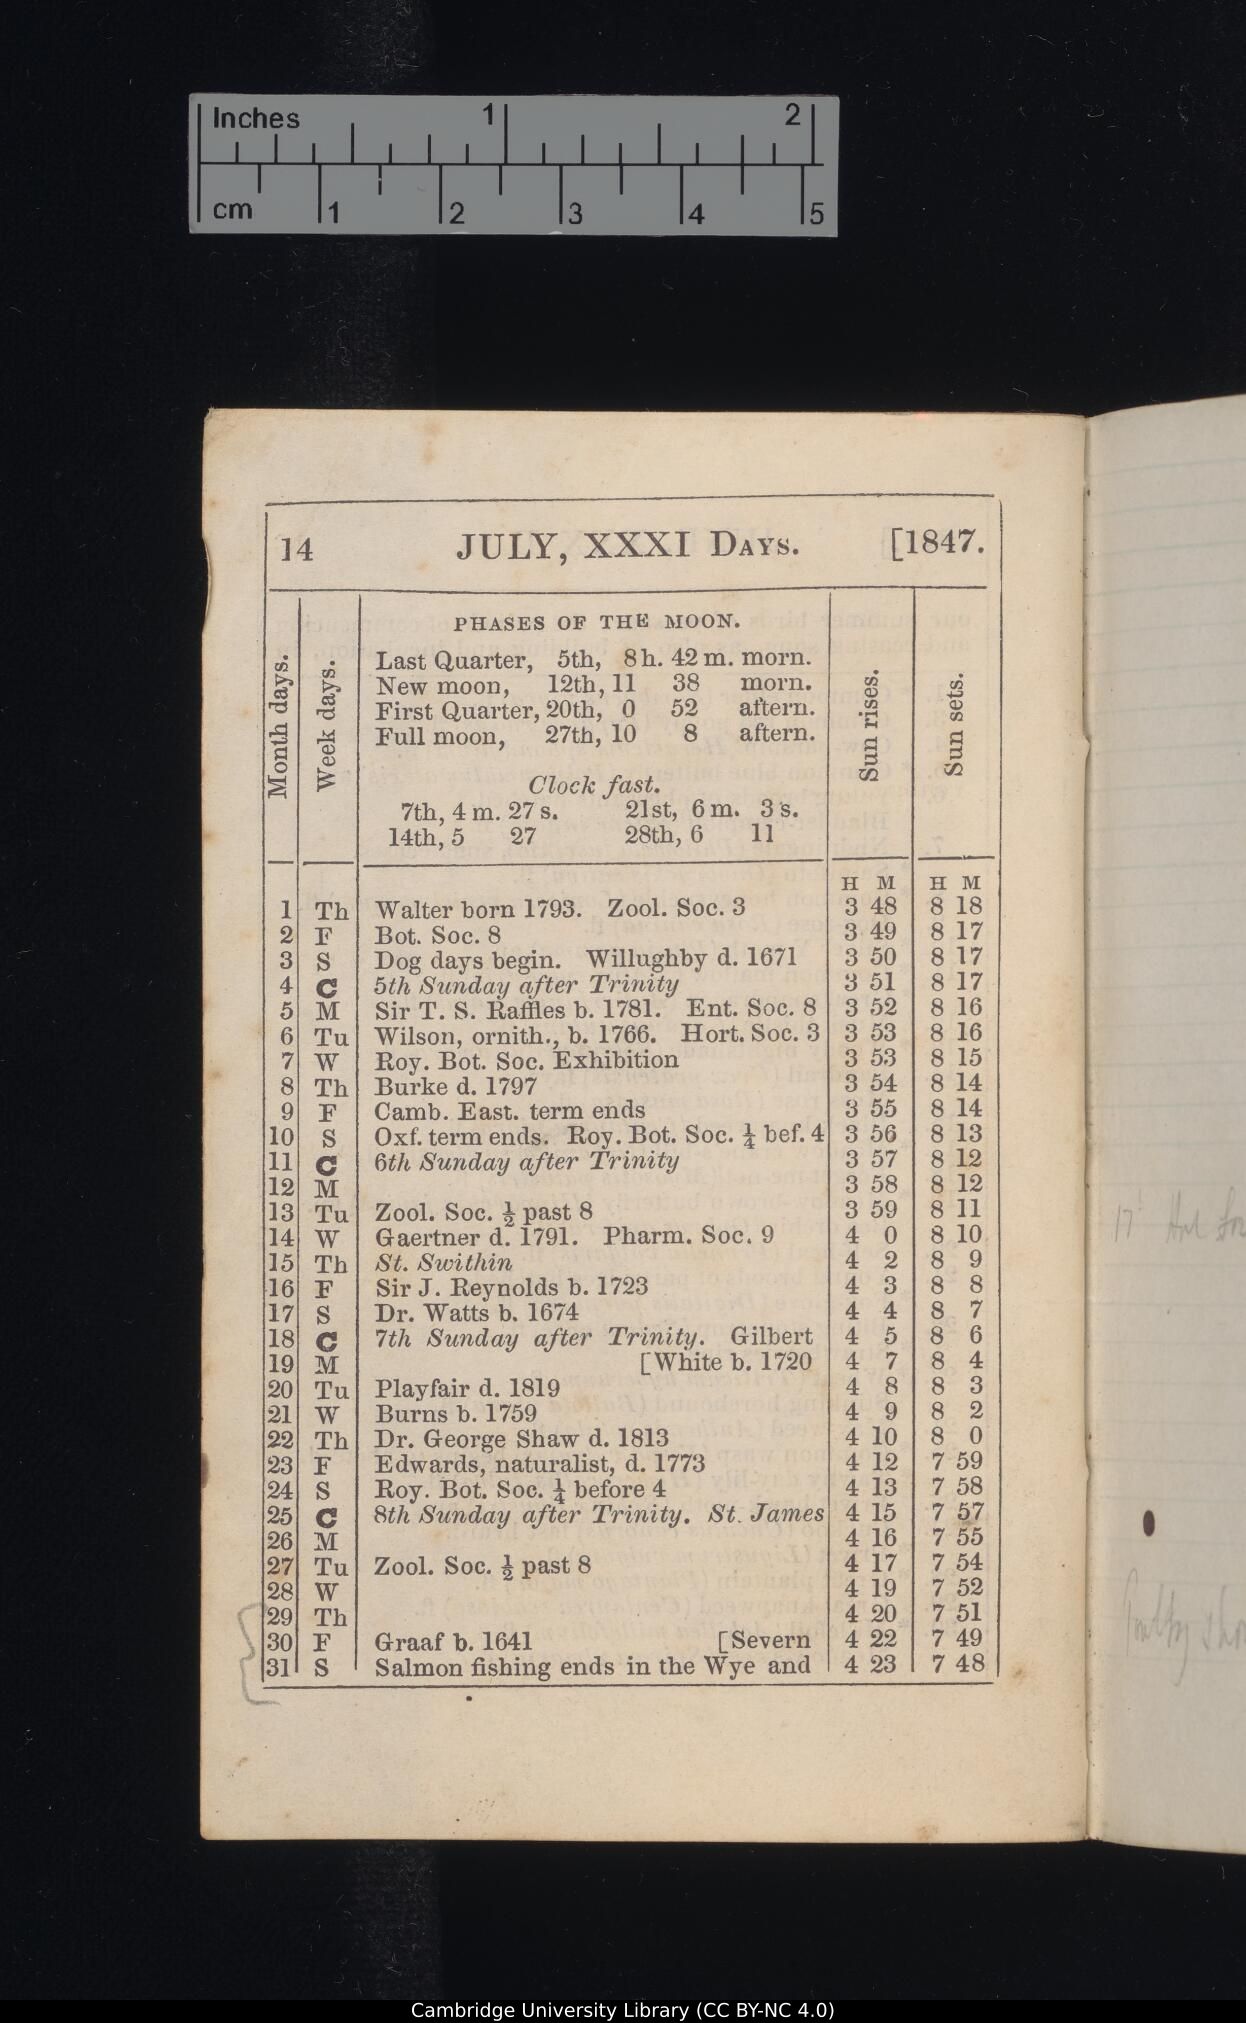 Inches 1 2
cm 1 2 3 4 5
14 JULY, XXXI DAYS. [1847.
Month days. Week days. Sun rises. Sun sets.
PHASES OF THE MOON.
Last Quarter, 5th, 8 h. 42 m. morn.
New moon, 12th, 11 38 morn.
First Quarter, 20th, 0 52 aftern.
Full moon, 27th, 10 8 aftern.
Clock fast.
7th, 4 m. 27 s. 21st, 6 m. 3 s.
14th, 5 27 28th, 6 11
H M H M
1 Th Walter born 1793. Zool. Soc. 3 3 48 8 18
2 F Bot. Soc. 8 3 49 8 17
3 S Dog days begin. Willughby d. 1671 3 50 8 17
4 C 5th Sunday after Trinity 3 51 8 17
5 M Sir T. S. Raffles b. 1781. Ent. Soc. 8 3 52 8 16
6 Tu Wilson, ornith., b. 1766. Hort. Soc. 3 3 53 8 16
7 W Roy. Bot. Soc. Exhibition 3 53 8 15
8 Th Burke d. 1797 3 54 8 14
9 F Camb. East. term ends 3 55 8 14
10 S Oxf. term ends. Roy. Bot. Soc. ¼ bef. 4 3 56 8 13
11 C 6th Sunday after Trinity 3 57 8 12
12 M 3 58 8 12
13 Tu Zool. Soc. ½ past 8 3 59 8 11
14 W Gaertner d. 1791. Pharm. Soc. 9 4 0 8 10
15 Th St. Swithin 4 2 8 9
16 F Sir J. Reynolds b. 1723 4 3 8 8
17 S Dr. Watts b. 1674 4 4 8 7
18 C 7th Sunday after Trinity. Gilbert 4 5 8 6
19 M [White b. 1720 4 7 8 4
20 Tu Playfair d. 1819 4 8 8 3
21 W Burns b. 1759 4 9 8 2
22 Th Dr. George Shaw d. 1813 4 10 8 0
23 F Edwards, naturalist, d. 1773 4 12 7 59
24 S Roy. Bot. Soc. ¼ before 4 4 13 7 58
25 C 8th Sunday after Trinity. St. James 4 15 7 57
26 M 4 16 7 55
27 Tu Zool. Soc. ½ past 8 4 17 7 54
28 W 4 19 7 52
29 Th 4 20 7 51
30 F Graaf b. 1641 [Severn 4 22 7 49
31 S Salmon fishing ends in the Wye and 4 23 7 48
Cambridge University Library (CC BY-NC 4.0)